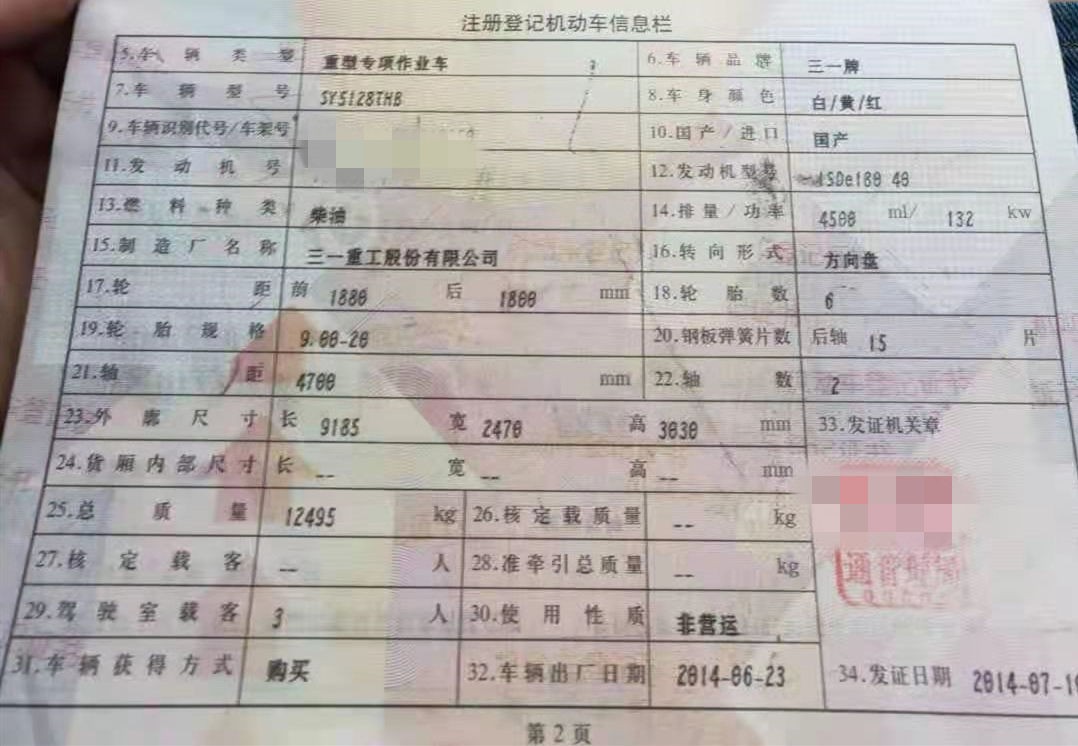 注册登记机动车信息栏
5.车辆类型 重型专项作业车 6.车辆品牌 三一牌
7.车辆型号 SY5128THB 8.车身颜色 白/黄/红
9.车辆识别代号/车架号 10.国产/进口 国产
11.发动机号 12.发动机型号 ISDe180 40
13.燃料种类 柴油 14.排量/功率 4500 ml/ 132 kw
15.制造厂名称 三一重工股份有限公司 16.转向形式 方向盘
17.轮距 前 1880 后 1800 mm 18.轮胎数 6
19.轮胎规格 9.00-20 20.钢板弹簧片数 后轴 15 片
21.轴距 4700 mm 22.轴数 2
23.外廓尺寸 长 9185 宽 2470 高 3030 mm 33.发证机关章
24.货厢内部尺寸 长 -- 宽 -- 高 -- mm
25.总质量 12495 kg 26.核定载质量 -- kg
27.核定载客 -- 人 28.准牵引总质量 -- kg
29.驾驶室载客 3 人 30.使用性质 非营运
31.车辆获得方式 购买 32.车辆出厂日期 2014-06-23 34.发证日期 2014-07-1
第2页